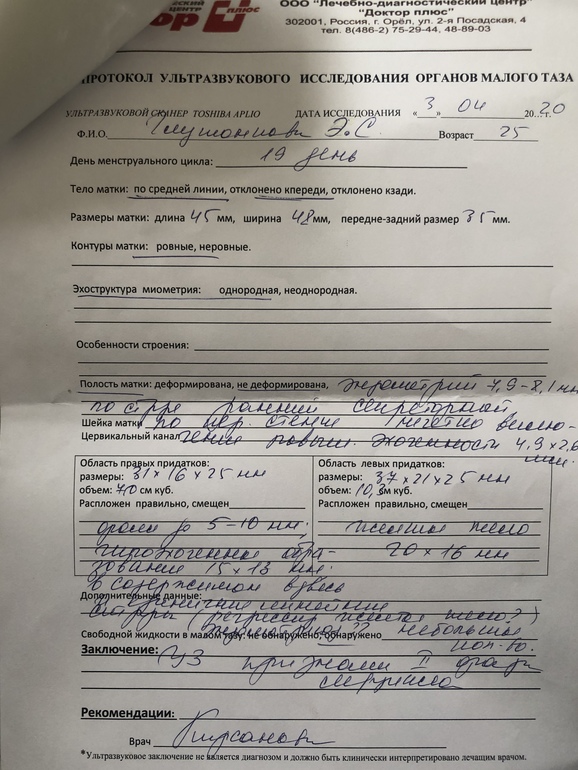 ский
центр
ор плюс
ООО "Лечебно-диагностический центр"
"Доктор плюс"
302001, Россия, г. Орёл, ул. 2-я Посадская, 4
тел. 8(486-2) 75-29-44, 48-89-03
ПРОТОКОЛ УЛЬТРАЗВУКОВОГО ИССЛЕДОВАНИЯ ОРГАНОВ МАЛОГО ТАЗА
УЛЬТРАЗВУКОВОЙ СКАНЕР TOSHIBA APLIO ДАТА ИССЛЕДОВАНИЯ «3» 04 2020 г.
Ф.И.О. Э.С. Возраст 25
День менструального цикла: 19 день
Тело матки: по средней линии, отклонено кпереди, отклонено кзади.
Размеры матки: длина 45 мм, ширина 48 мм, передне-задний размер 35 мм.
Контуры матки: ровные, неровные.
Эхоструктура миометрия: однородная, неоднородная.
Особенности строения:
Полость матки: деформирована, не деформирована, эндометрий 7,9-8,1 мм
по стр-ре ранней секреторной
Шейка матки по пер. стенке нечетко
Цервикальный канал повыш. эхогенности 4,9 х 2,6
мм.
Область правых придатков:
размеры: 31 х 16 х 25 мм
объем: 7,0 см куб.
Распложен правильно, смещен
фолл до 5-10 мм.
гипоэхогенное обра-
зование 15 х 13 мм.
Область левых придатков:
размеры: 37 х 21 х 25 мм
объем: 10,3 см куб.
Распложен правильно, смещен
желтое тело
20 х 16 мм
в содержимом взвесь
Дополнительные данные:
линейные
(регрессир желтое тело?)
эндометриоид?
Свободной жидкости в малом тазу: не обнаружено, обнаружено небольшое
кол-во.
Заключение: УЗ признаки II фазы
Рекомендации:
Врач Кирсанова
*Ультразвуковое заключение не является диагнозом и должно быть клинически интерпретировано лечащим врачом.